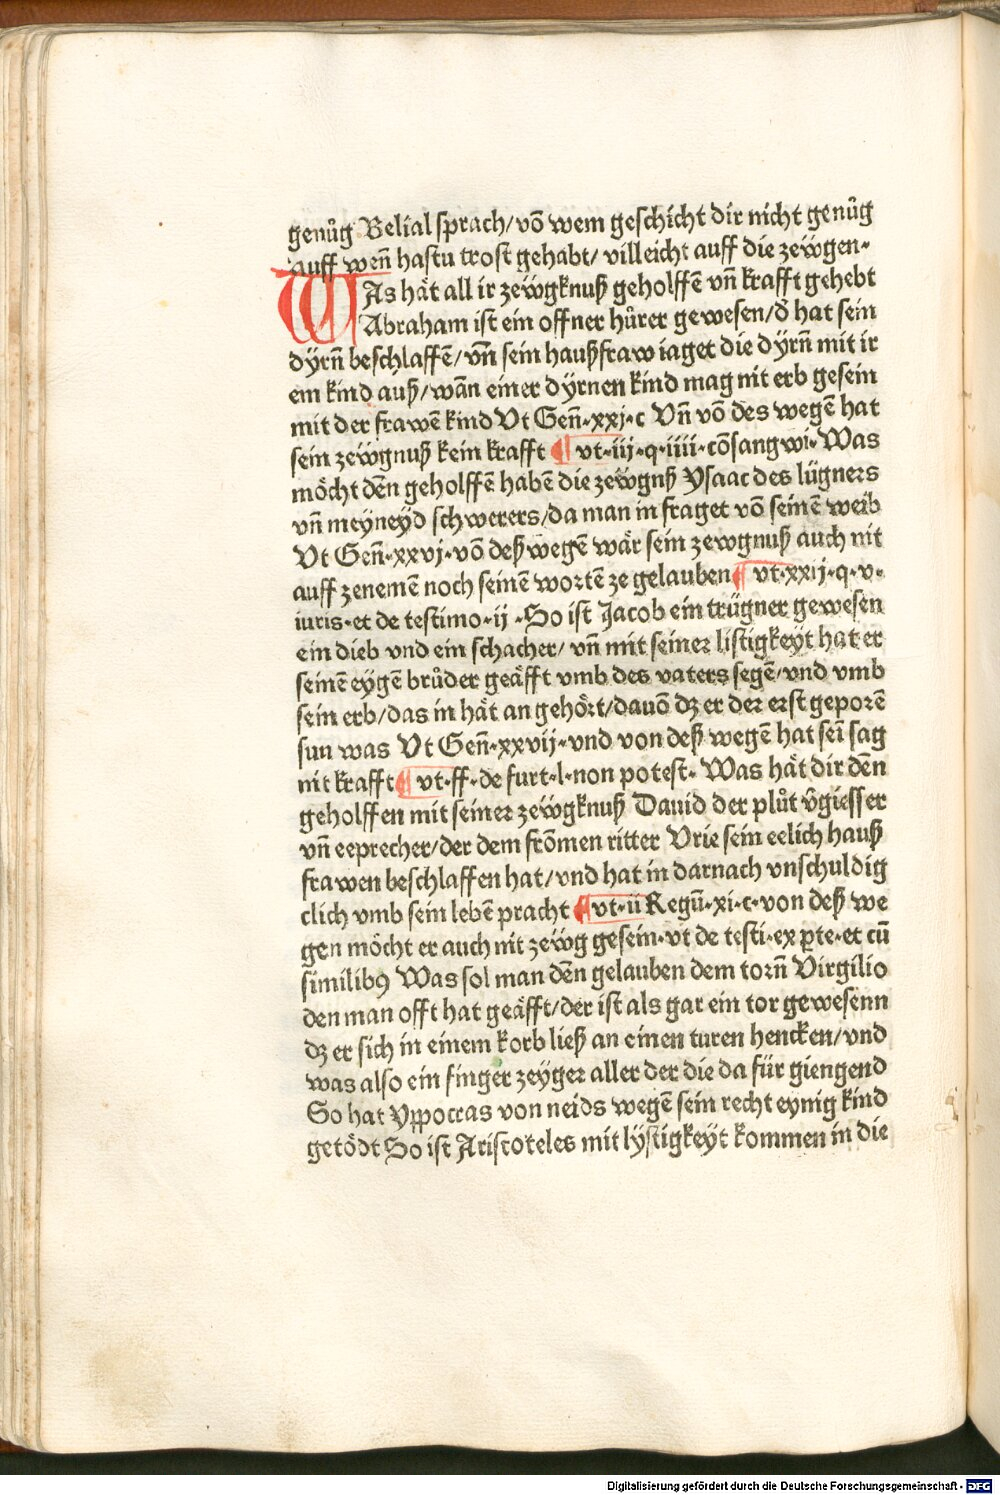 genůg Belial sprach/vō wem geschicht dir nicht genůg
auff wen̄ hastu trost gehabt/ villeicht auff die zeẅgen·
WAs hät all ir zeẅgknuß geholffē vn̄ krafft gehebt
Abraham ist ein offner hůrer gewesen/d̄ hat sein
dÿrn̄ beschlaffē/vn̄ sein haußfraw iaget die dÿrn̄ mit ir
em kind auß/wān einer dÿrnen kind mag nit erb gesein
mit der frawē kind Vt Gen̄·xxj·c Vn̄ vō des wegē hat
sein zeẅgnuß kein krafft ¶ vt·iij·q·iiii·cōsangwi·Was
möcht dēn geholffē habē die zeẅgnß Ysaac des lügners
vn̄ meyneÿd schwerers/da man in fraget vō seinē weib
Vt Gen̄·xxvj·vō deß wegē wär sein zewgnuß auch nit
auff zenemē noch seinē wortē ze gelauben ¶ vt·xxij·q·v·
iuris·et de testimo·ij ·So ist Jacob ein trügner gewesen
ein dieb vnd ein schacher/ vn̄ mit seiner listigkeÿt hat er
seinē eÿgē brůder geäfft vmb des vaters segē/vnd vmb
sein erb/das in hät an gehört/dauō dz er der erst geporē
sun was Vt Gen̄·xxvij·vnd von deß wegē hat sei̅ sag
nit krafft ¶ vt·ff·de furt·l·non potest· Was hät dir dēn
geholffen mit seiner zeẅgknuß Dauid der plůt v̄giesser
vn̄ eeprecher/der dem frōmen ritter Vrie sein eelich hauß
frawen beschlaffen hat/vnd hat in darnach vnschuldig
clich vmb sein lebē pracht ¶ vt·ii Regū·xi·c·von deß we
gen möcht er auch nit zeẅg gesein·vt de testi·ex ꝑte·et cū
similibꝰ Was sol man dēn gelauben dem torn̄ Virgilio
den man offt hat geäfft/der ist als gar ein tor gewesenn
dz er sich in einem korb ließ an einen turen hencken/vnd
was also ein finger zeÿger aller der die da für giengend
So hat Yppocras von neids wegē sein recht eynig kind
getödt So ist Aristoteles mit lÿstigkeÿt kommen in die
Digitalisierung gefördert durch die Deutsche Forschungsgemeinschaft - DFG